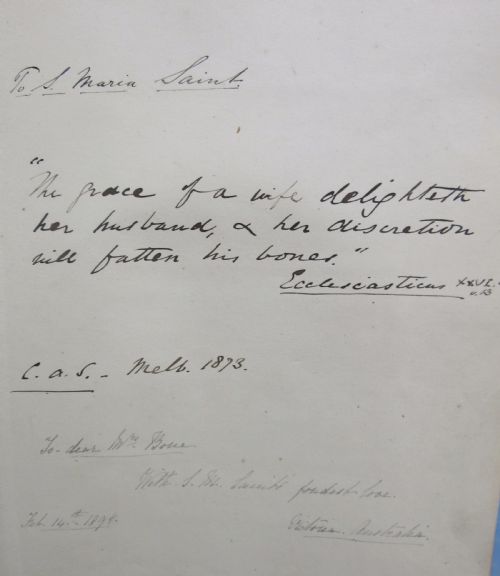 To S. Maria Saint.
"The grace of a wife delighteth
her husband, & her discretion
will fatten his bones."
Ecclesiasticus XXVI.
v. 13
C. a. S. - Melb. 1873.
To dear Mrs Bone
With S. M. Saint's fondest love.
Feb. 14th 1898.
Victoria. Australia.